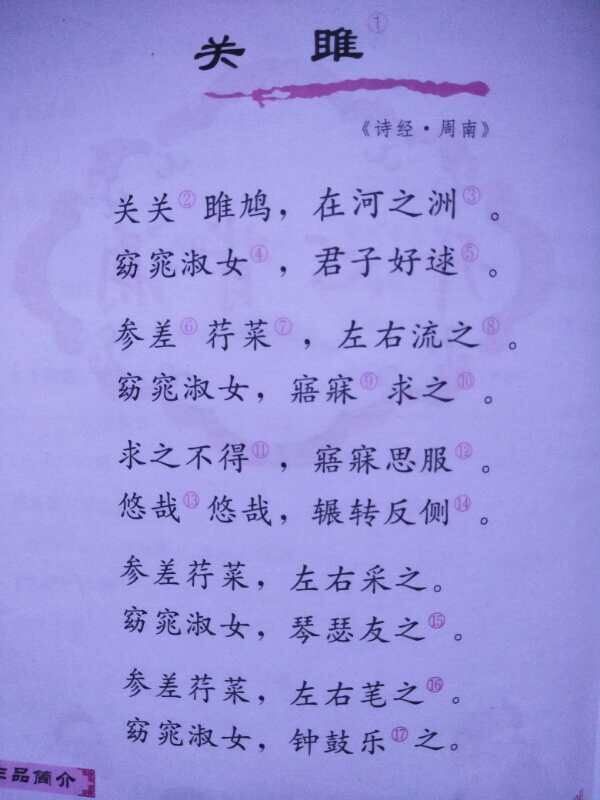 关 雎①
《诗经·周南》
关关②雎鸠，在河之洲③。
窈窕淑女④，君子好逑⑤。
参差⑥荇菜⑦，左右流之⑧。
窈窕淑女，寤寐⑨求之⑩。
求之不得⑪，寤寐思服⑫。
悠哉⑬悠哉，辗转反侧⑭。
参差荇菜，左右采之。
窈窕淑女，琴瑟友之⑮。
参差荇菜，左右芼之⑯。
窈窕淑女，钟鼓乐⑰之。
品简介